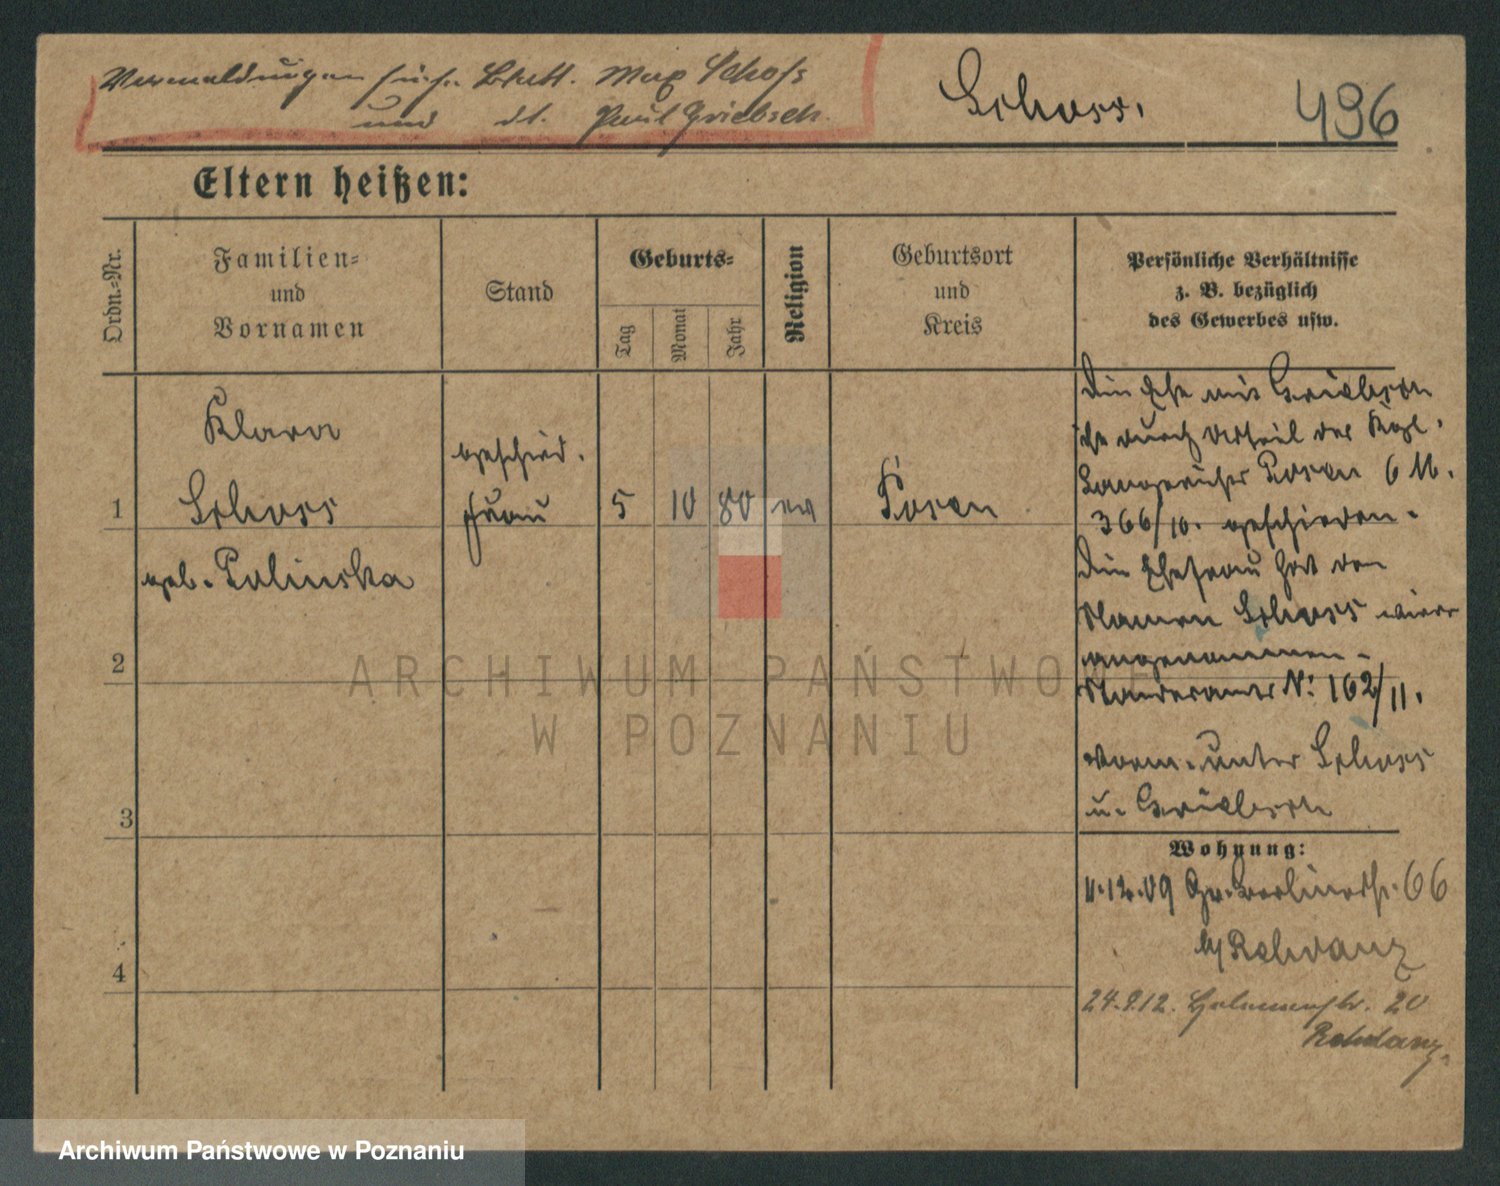 Vermeldungen siehe Blatt. Max Schoss
und dt. Paul Griebsch.
Schoss.
496
Eltern heißen:
Ordn.-Nr.
Familien-
und
Vornamen
Stand
Geburts-
Tag
Monat
Jahr
Religion
Geburtsort
und
Kreis
Persönliche Verhältnisse
z. B. bezüglich
des Gewerbes usw.
1
Klara
Schoss
geb. Polinska
geschied.
Frau
5
10
80
ev
Posen
Die Ehe mit Griebsch
ist durch Urteil des Kgl.
Landgerichts Posen 6 M.
366/10. geschieden.
Die Ehefrau hat den
Namen Schoss wieder
angenommen.
Standesamt N: 162/11.
Verm. unter Schoss
u. Griebsch
2
3
4
Wohnung:
12.09 Gr. Berlinerstr. 66
b/ Rehdanz
24.9.12. 20
Rehdanz.
ARCHIWUM PAŃSTWOWE
W POZNANIU
Archiwum Państwowe w Poznaniu